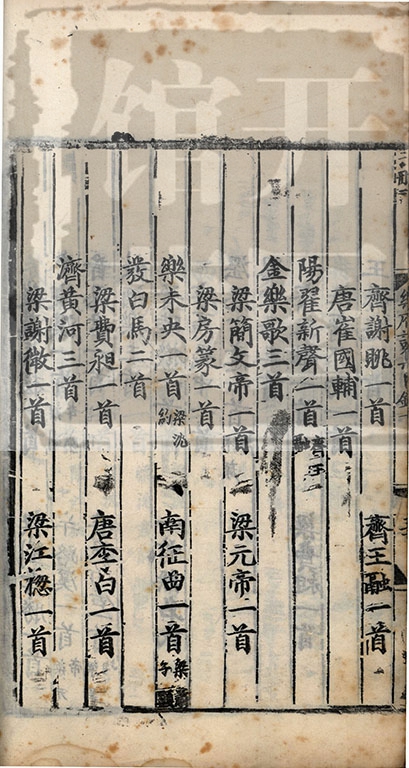 馆开
齊謝朓一首　齊王融一首
唐崔國輔一首
陽翟新聲一首　齊王
金樂歌三首
梁簡文帝一首　梁元帝一首
梁房篆一首
樂未央一首　梁沈約　南征曲一首　梁子顯
發白馬二首
梁費昶一首　唐李白一首
濟黃河三首
梁謝微一首　梁江總一首